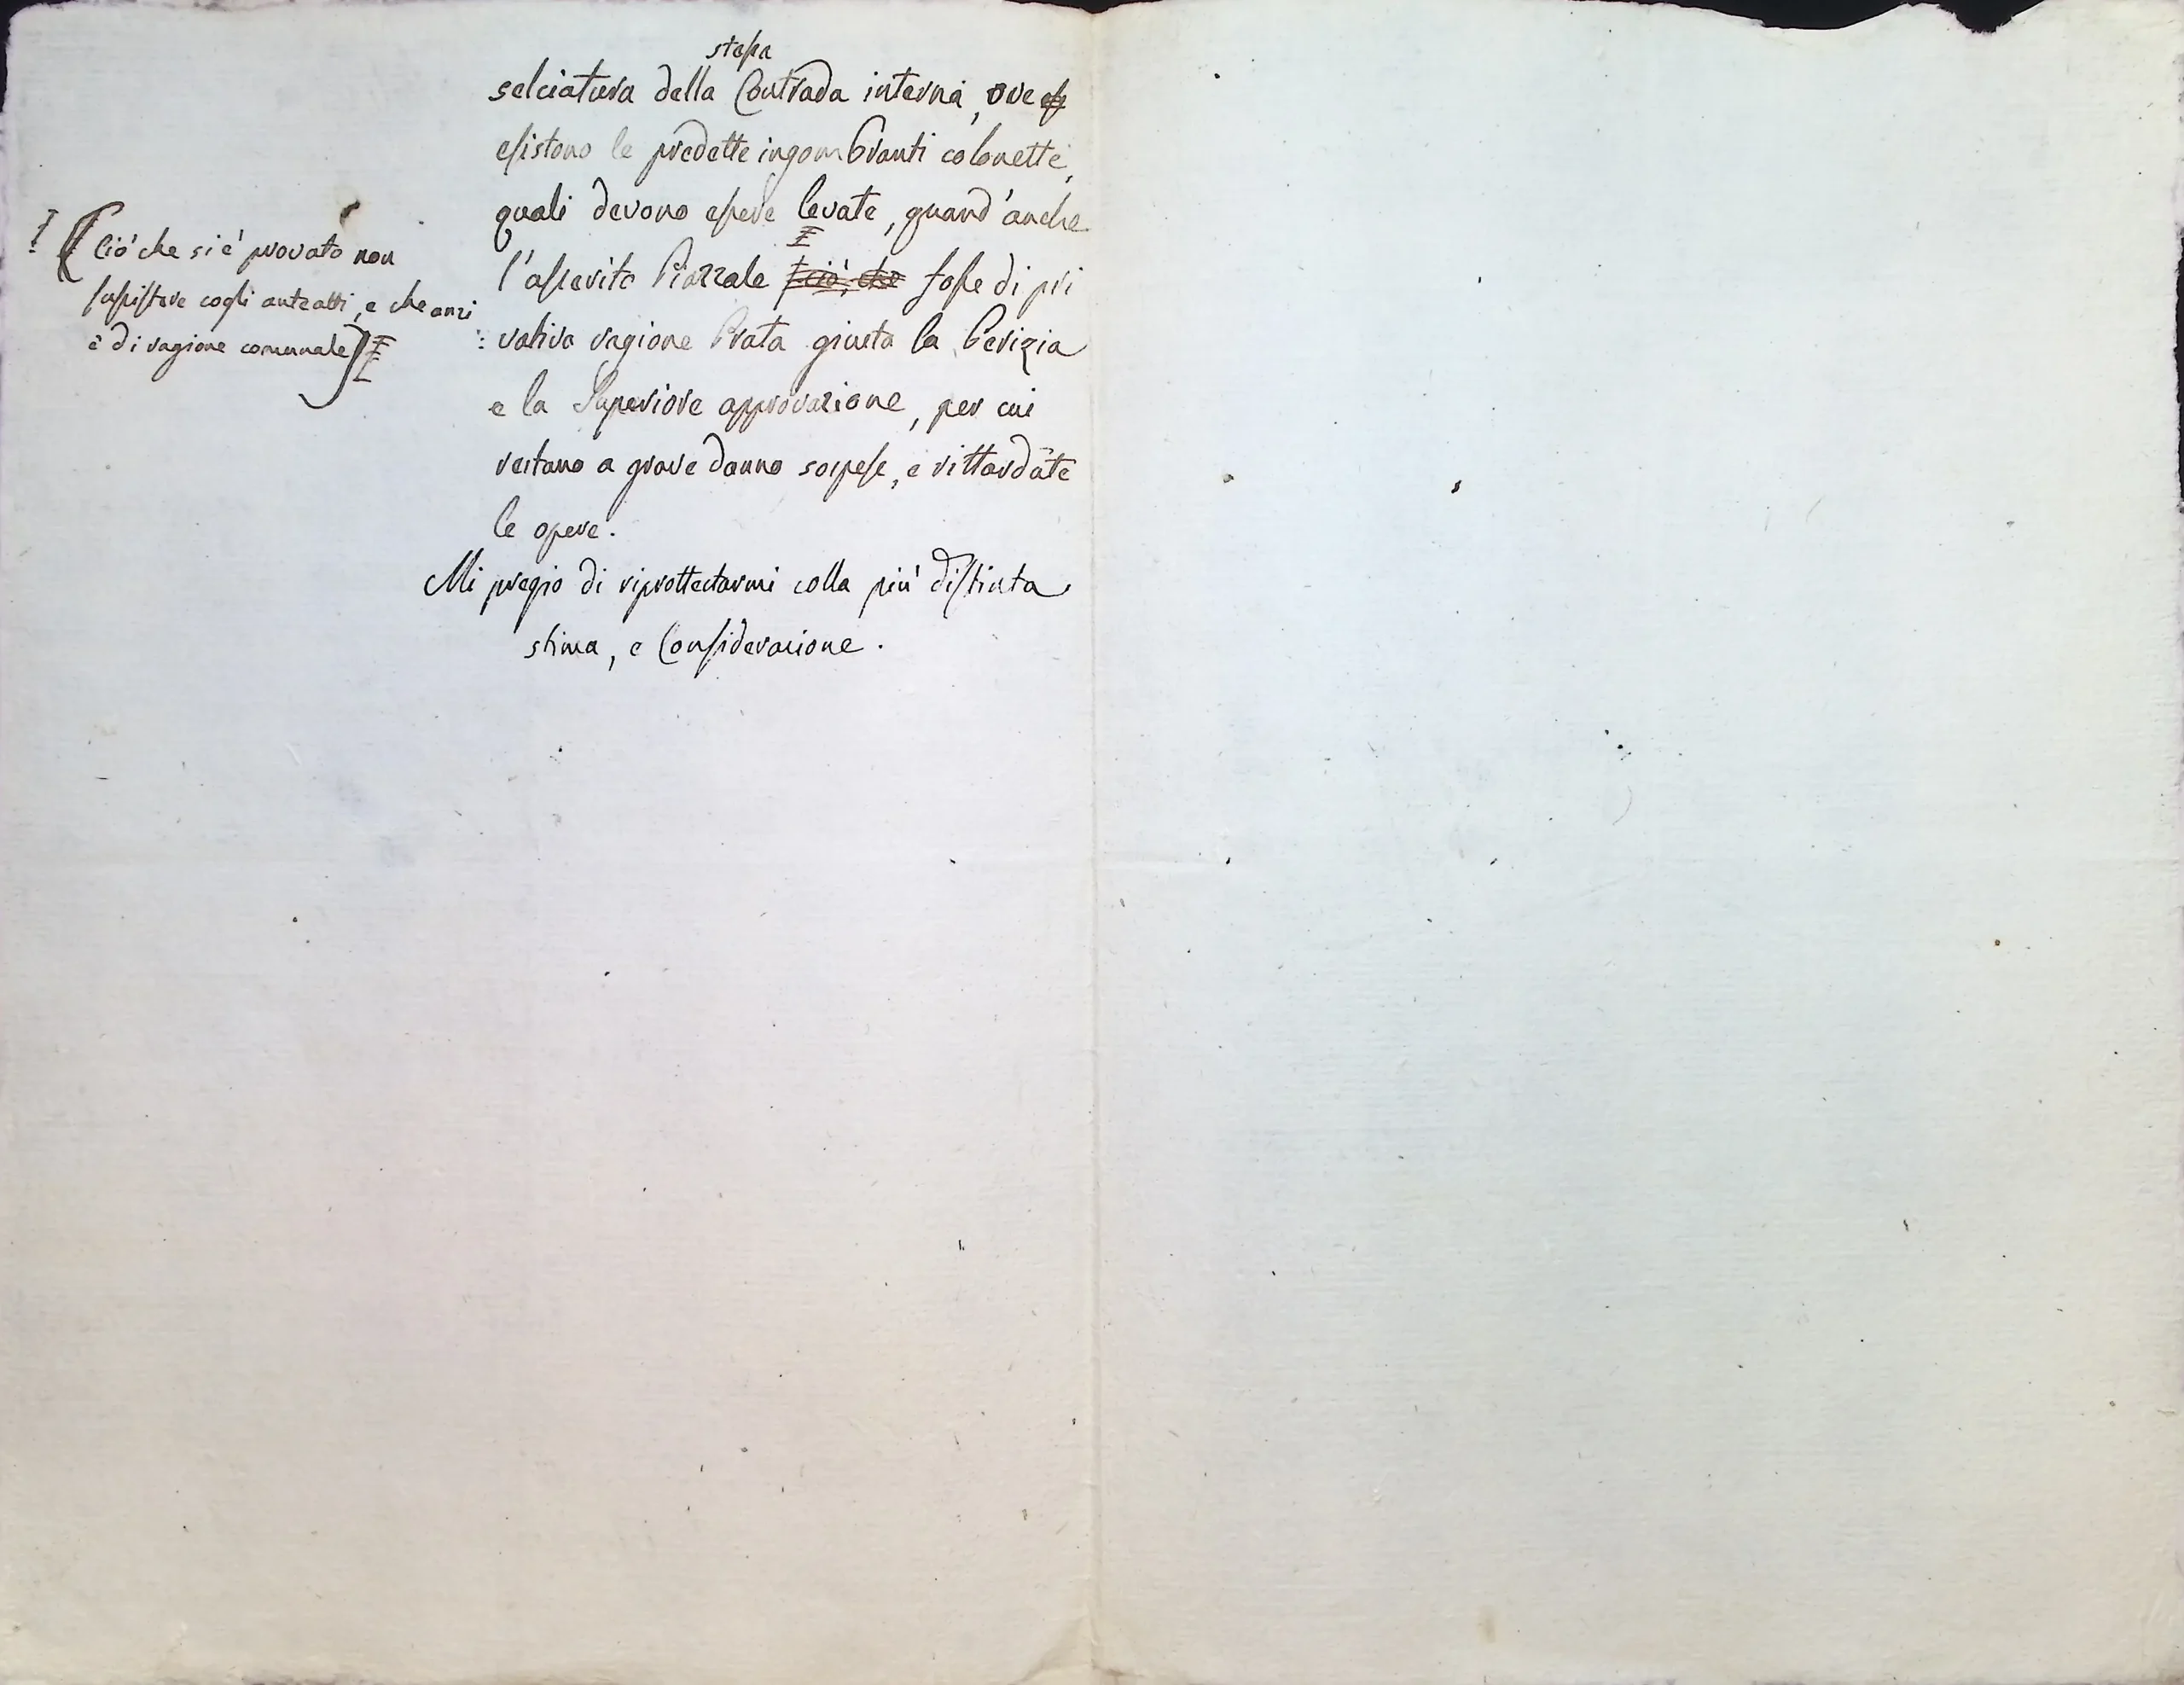 stessa
selciatura della Contrada interna, ove es
esistono le predette ingombranti colonette,
quali devono essere levate, quand'anche
l'asserito Piazzale ciò, che fosse di pri
:vativa ragione Prata giusta la Perizia
e la Superiore approvazione, per cui
restano a grave danno sospese, e rittardate
le opere.
Mi pregio di riprottestarmi colla più distinta
stima, e Considerazione.
(Ciò che si è provato non
sussistere cogli anteatti, e che anzi
è di ragione comunale)